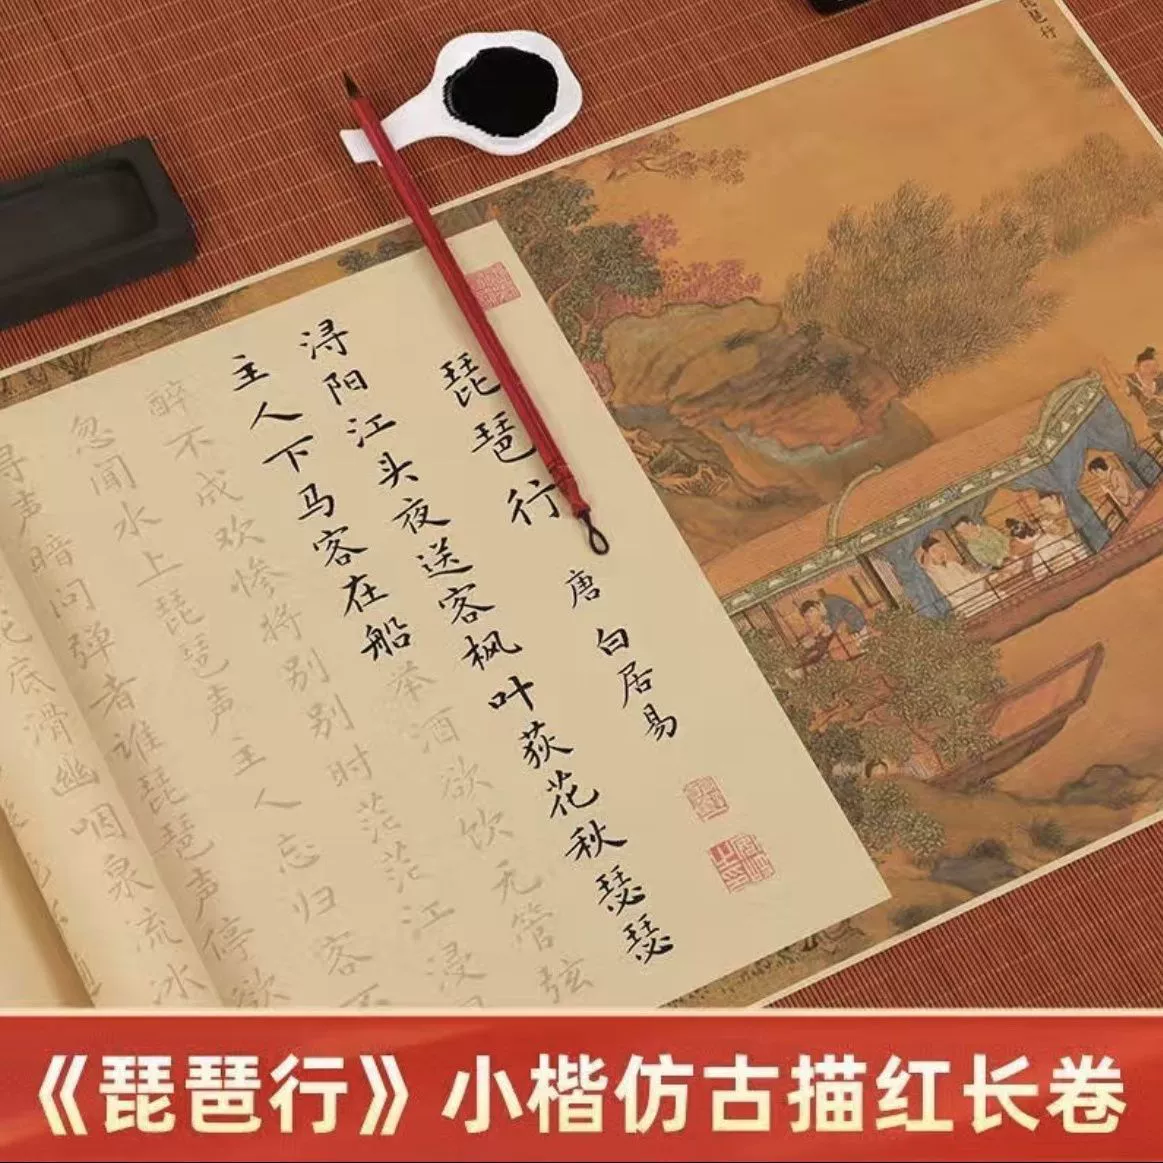 琵琶行
琵琶行 唐 白居易
浔阳江头夜送客枫叶荻花秋瑟瑟
主人下马客在船举酒欲饮无管弦
醉不成欢惨将别别时茫茫江浸
忽闻水上琵琶声主人忘归客不
寻声暗问弹者谁琵琶声停欲
花底滑幽咽泉流冰
《琵琶行》小楷仿古描红长卷